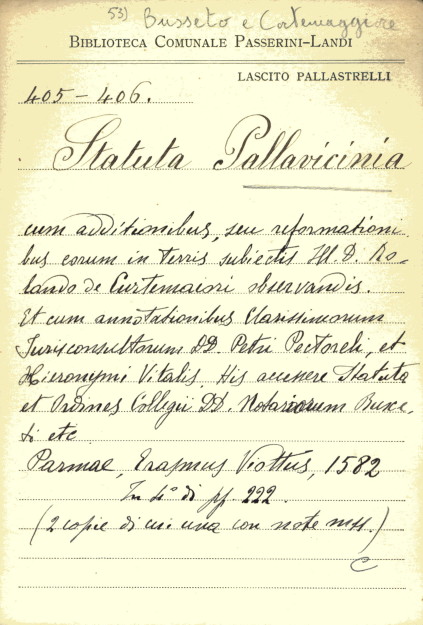 53) Busseto e Cortemaggiore
BIBLIOTECA COMUNALE PASSERINI-LANDI
LASCITO PALLASTRELLI
405-406.
Statuta Pallavicinia
cum additionibus, seu reformationi
bus eorum in terris subiectis Ill. D. Ro-
lando de Curtemaiori observandis.
Et cum annotationibus Clarissimorum
Jurisconsultorum DD. Petri Pectoreli, et
Hieronymi Vitalis. His accessere Statuta
et Ordines Collegii DD. Notariorum Buxe,
ti etc
Parmae, Erasmus Viottus, 1582
In 4° di pp. 222.
(2 copie di cui una con note mss.)
C